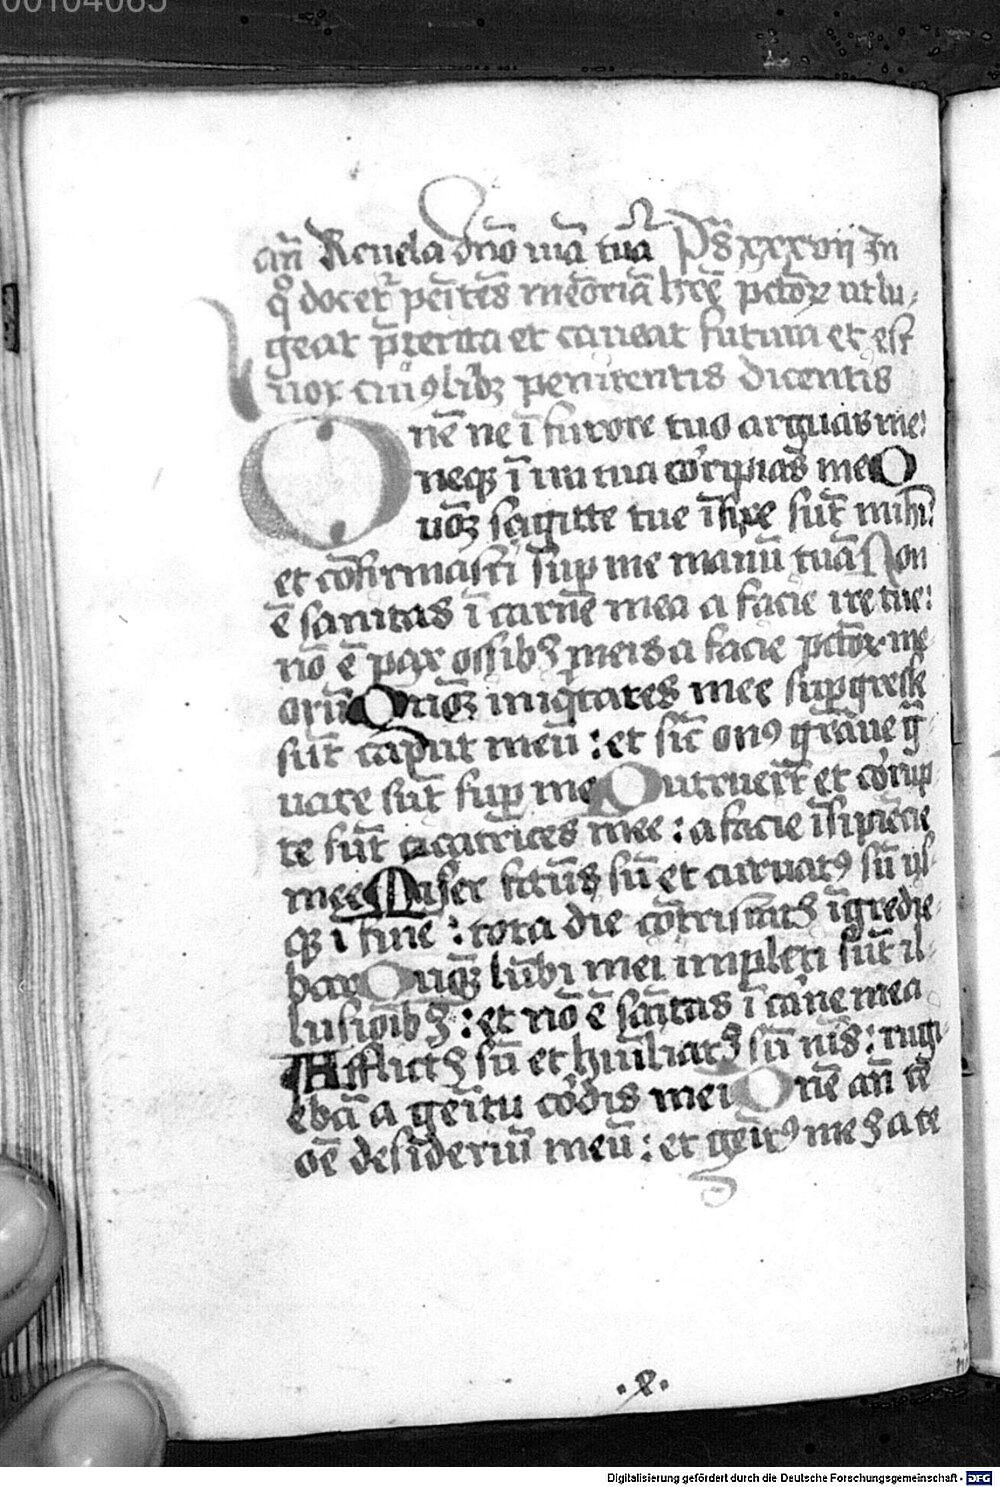 00104085
añ Reuela dño uiã tuã Ps̃ xxxvij In
qͦ docet᷑ peñites meõriã hr̃e pctõꝝ ut lu⸗
geat p̃terita et caueat futura et est
uox cuiꝰlibꝫ penitentis dicentis
Dnẽ ne ĩ furore tuo arguas me:
neqꝫ ĩ ira tua corripias me Q
uõꝫ sagitte tue ĩfixe sũt mihi:
et cõfirmasti sup̱ me manũ tuã Non
ẽ sanitas ĩ carne mea a facie ire tue:
nõ ẽ pax ossibꝫ meis a facie pctõꝝ me⸗
orũ Qũiꝫ iniqͥtates mee sup̱gresse
sũt caput meũ : et sič onꝰ graue g̃⸗
uate sũt sup̱ me Putruer̃t et corrup⸗
te sũt cicatrices mee : a facie ĩsipiẽcie
mee Miser factꝰ sũ et curuatꝰ sũ us⸗
qꝫ ĩ finẽ : tota die cõtristatꝰ ĩgredie⸗
bar Quõꝫ lũbi mei impleti sũt il⸗
lusioĩbꝫ : et nõ ẽ sañitas ĩ carne mea
Afflictꝰ sũ et humĩliatꝰ sũ nĩs : rugi⸗
ebã a gemĩtu cordis mei Dnẽ añ te
oẽ desideriũ meũ : et gemĩtꝰ meꝰ a te
Digitalisierung gefördert durch die Deutsche Forschungsgemeinschaft - DFG